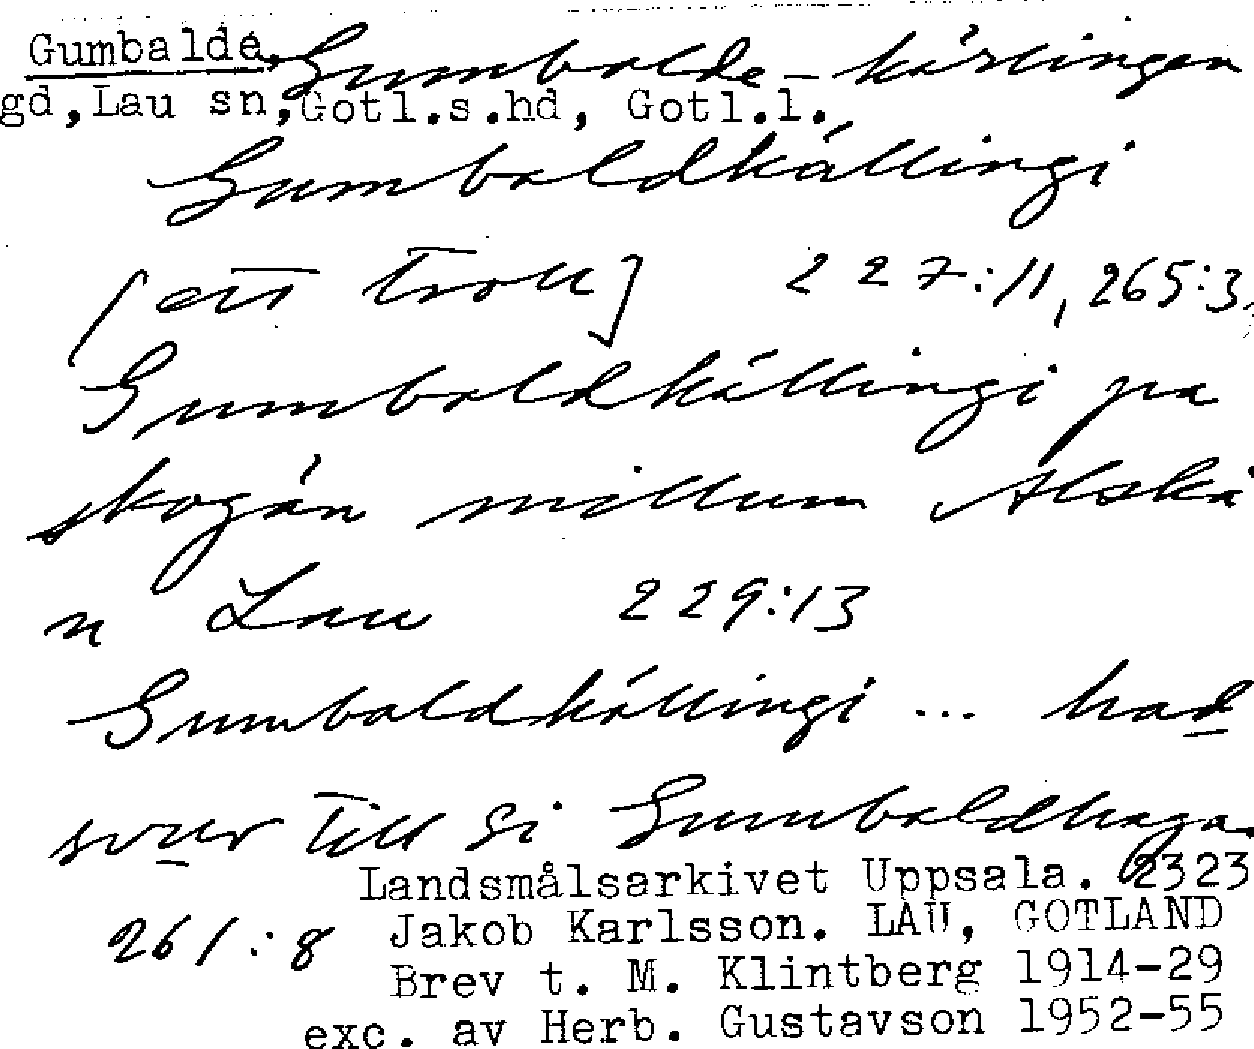 Gumbalde, Gumbalde-kärlingen
gd, Lau sn, Gotl.s.hd, Gotl.l.
Gumbaldkällingi
[ett troll] 227:11, 265:3,
Gumbaldkällingi pa
skogän millum Alskä
u Lau 229:13
Gumbaldkällingi ... had
svur till si Gumbaldhaga
Landsmålsarkivet Uppsala. 2323
261:8 Jakob Karlsson. LAU, GOTLAND
Brev t. M. Klintberg 1914-29
exc. av Herb. Gustavson 1952-55